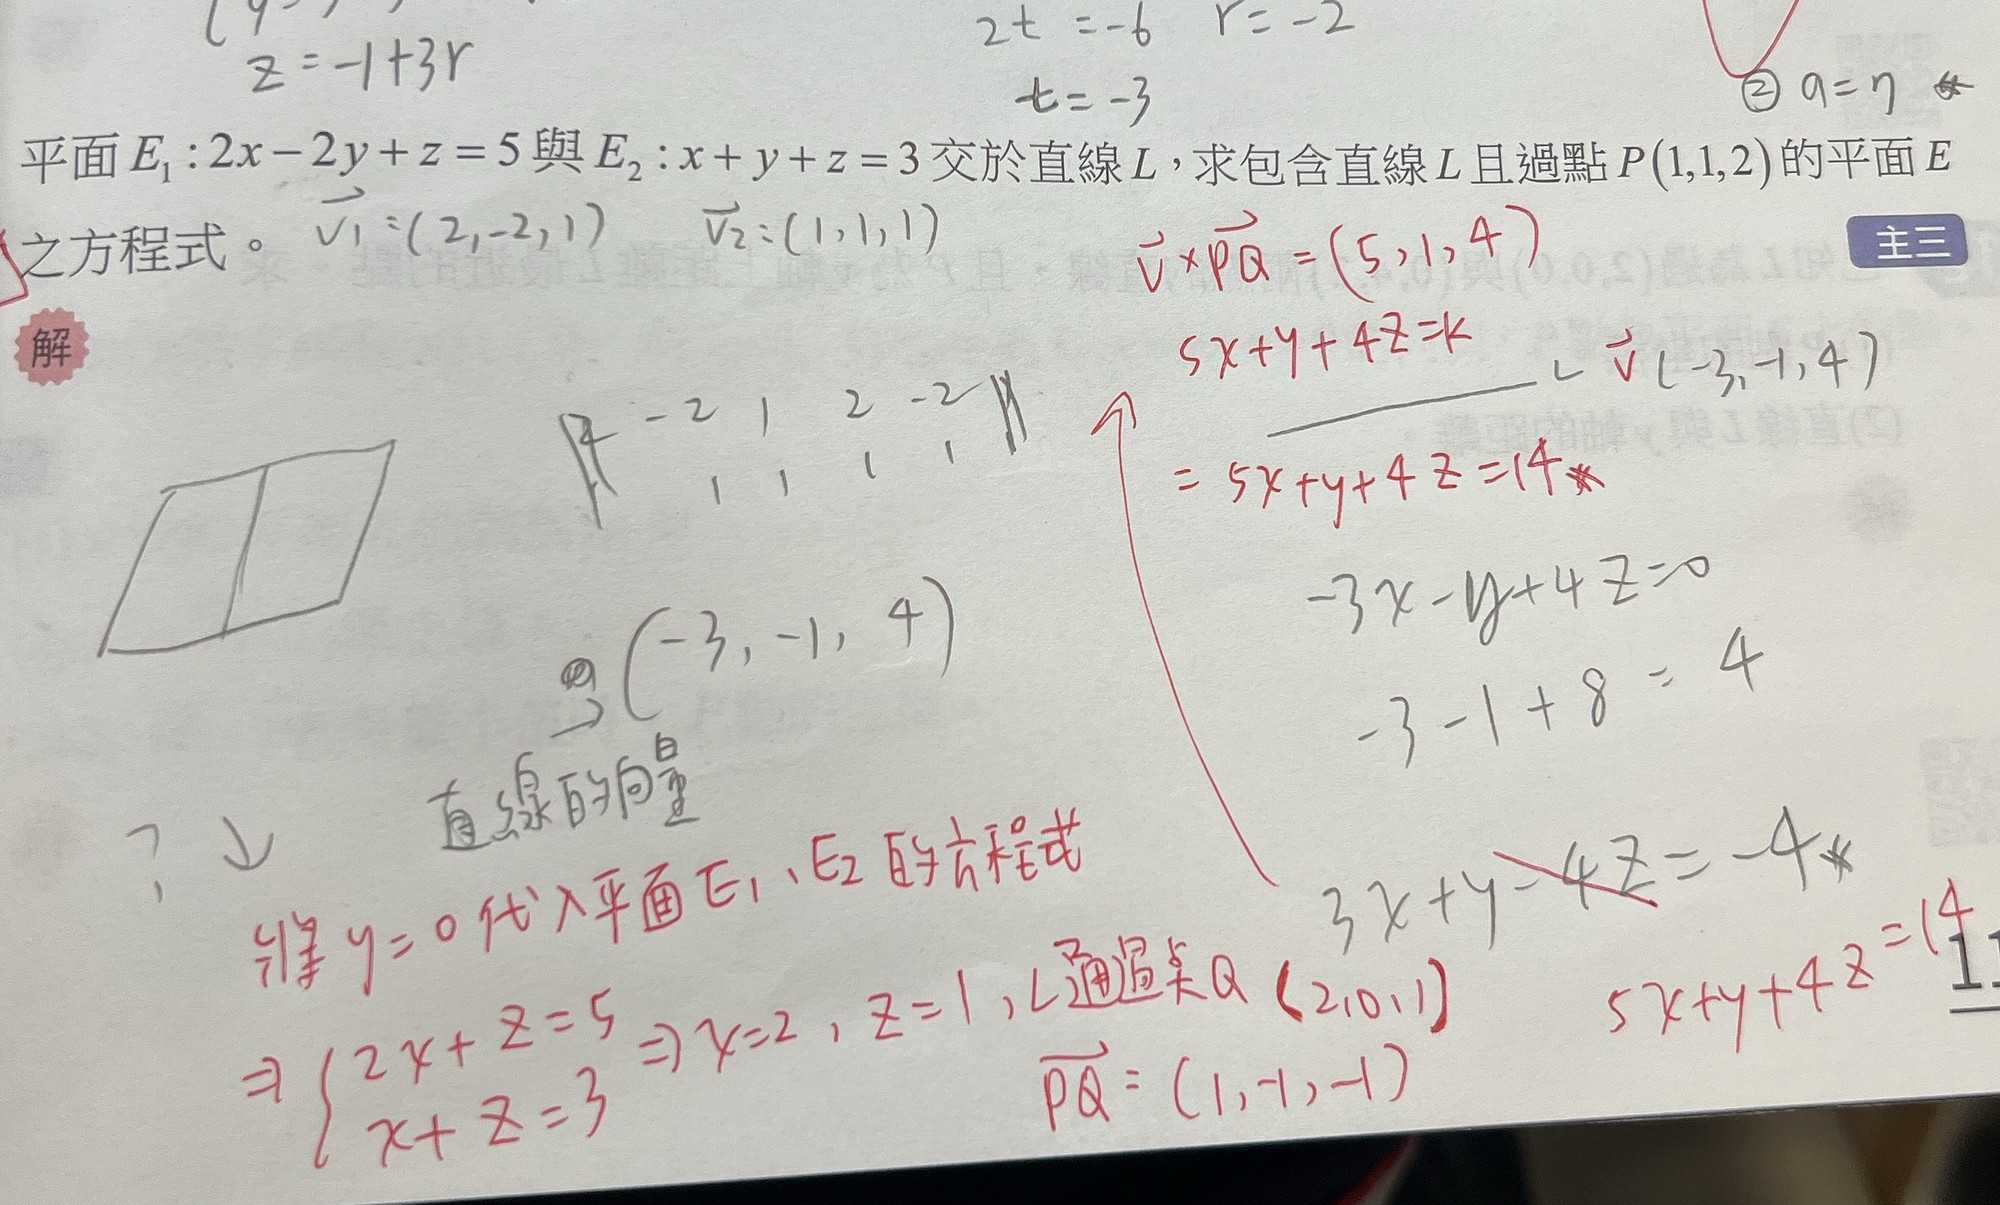 z = -1+3r
2t = -6 r = -2
t = -3
② a = 7
平面 E₁ : 2x − 2y + z = 5 與 E₂ : x + y + z = 3 交於直線 L，求包含直線 L 且過點 P(1,1,2) 的平面 E
之方程式。
主三
V₁ = (2,-2,1) V₂ = (1,1,1)
V × PQ = (5,1,4)
5x+y+4z=k
L V (-3,-1,4)
= 5x+y+4z=14
解
-2 1 2 -2
1 1 1 1
(-3, -1, 4)
直線的向量
-3x-y+4z=0
-3-1+8 = 4
3x+y-4z=-4
5x+y+4z=14
? ↓
將 y=0 代入平面 E₁、E₂ 的方程式
⇒ { 2x+z=5
x+z=3
⇒ x=2, z=1, L 通過點 Q (2,0,1)
PQ = (1,-1,-1)